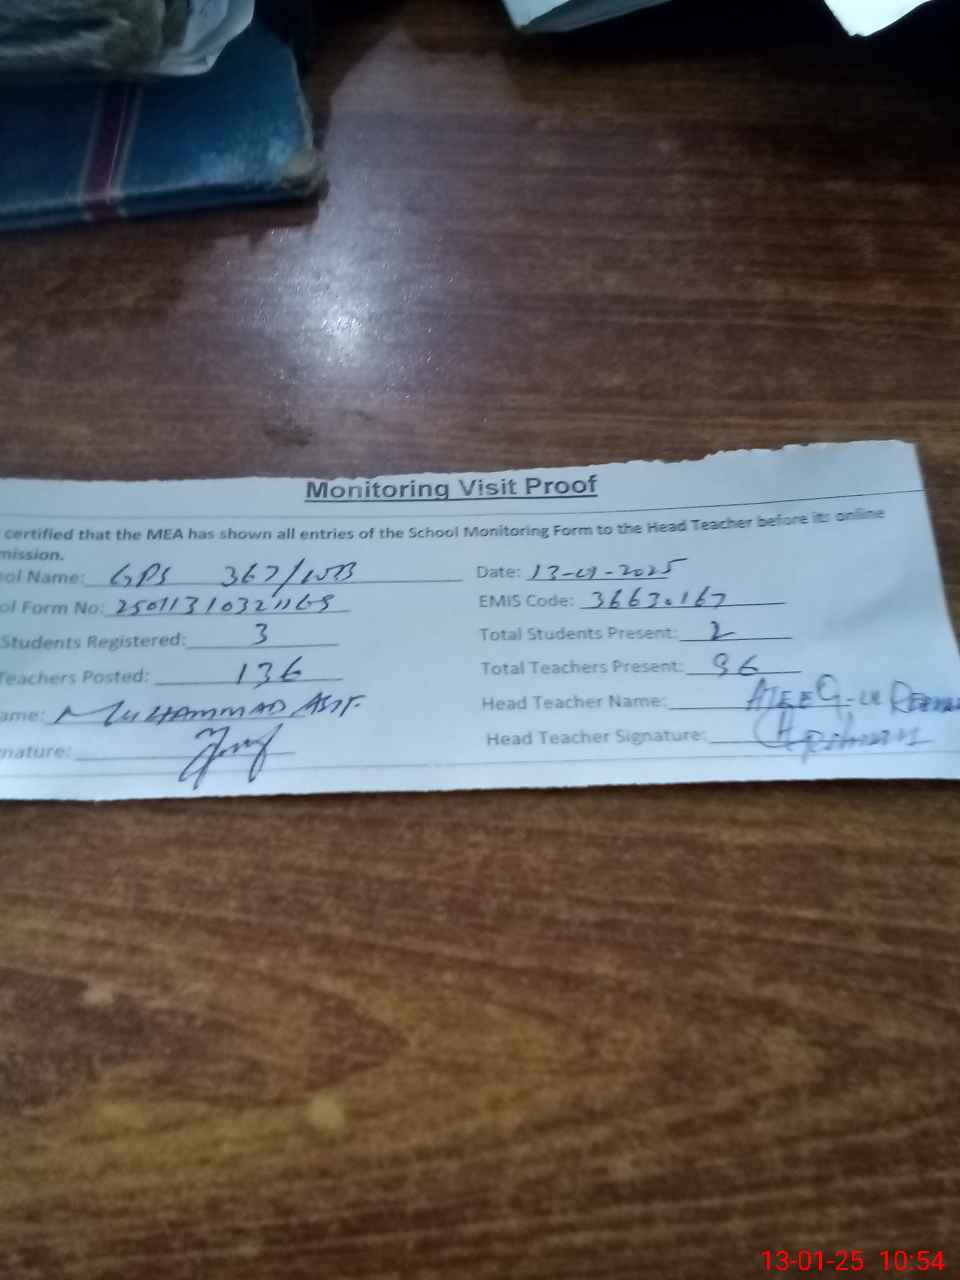 Monitoring Visit Proof
certified that the MEA has shown all entries of the School Monitoring Form to the Head Teacher before its online
mission.
ol Name: GPS 367/WB Date: 13-01-2025
ol Form No: EMIS Code: 36630167
Students Registered: 3 Total Students Present: 2
Teachers Posted: 136 Total Teachers Present: 96
ame: MUHAMMAD ASIF Head Teacher Name: ATEEQ-UR REHMA
nature: Head Teacher Signature:
13-01-25 10:54